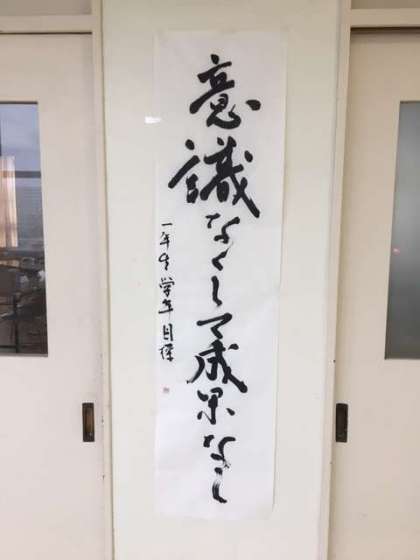 意識なくして成果なし
一年生学年目標